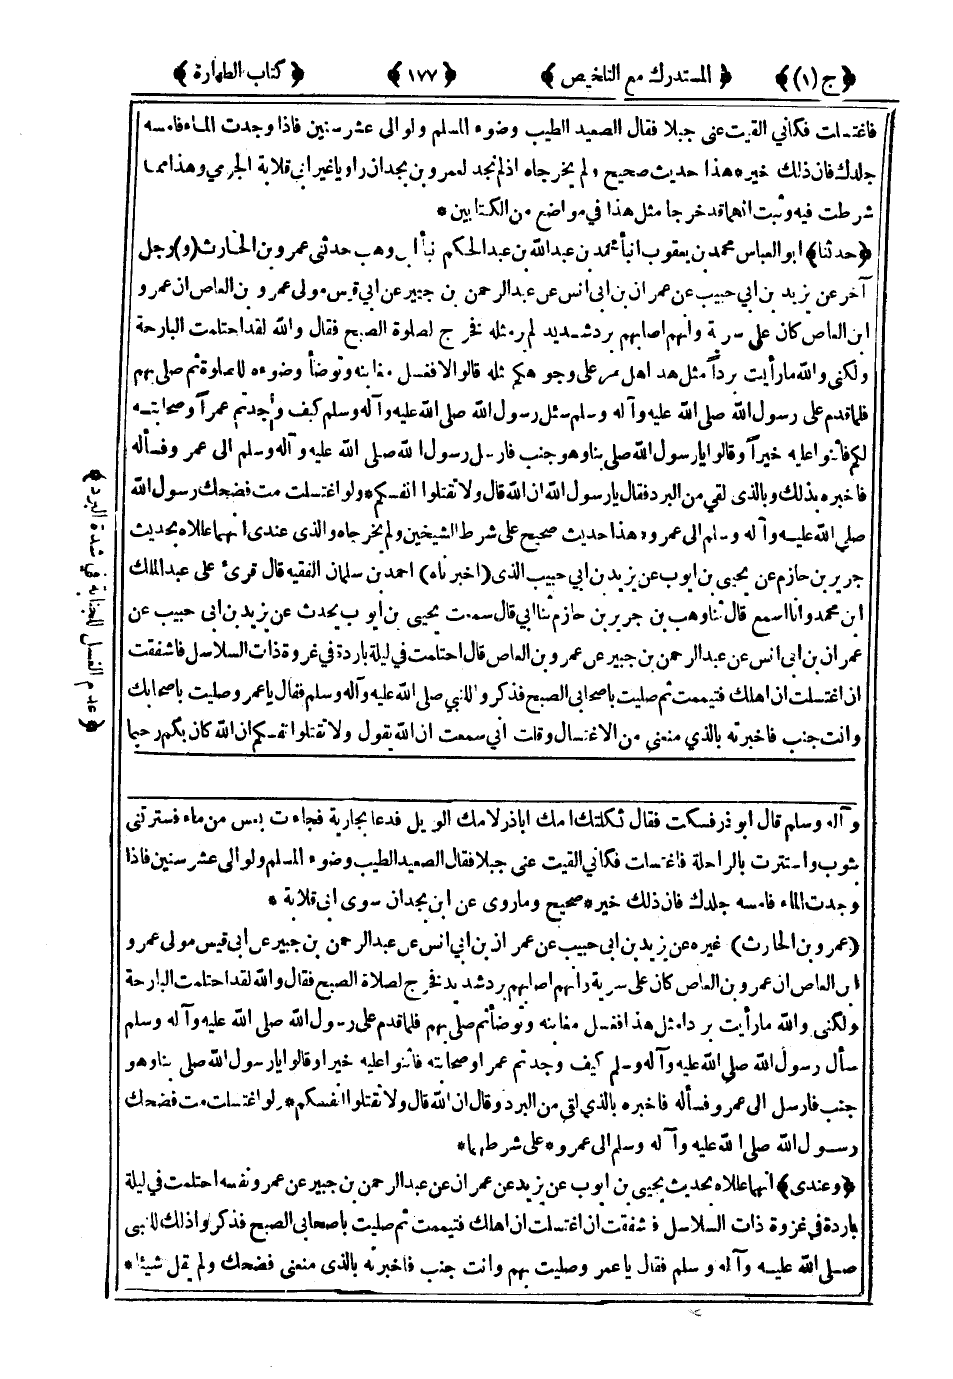 ﴿ ج (١) ﴾ ﴿ المستدرك مع التلخيص ﴾ ﴿ ١٧٧ ﴾ ﴿ كتاب الطهارة ﴾
فاغتسلت فكأني القيت عنى جبلا فقال الصعيد الطيب وضوء المسلم ولو الى عشر سنين فاذا وجدت الماء فامسه
جلدك فان ذلك خير * هذا حديث صحيح ولم يخرجاه اذ لم نجد لعمرو بن بجدان راويا غير ابي قلابة الجرمي وهذا مما
شرطت فيه وثبت انهما قد خرجا مثل هذا في مواضع من الكتابين *
﴿ حدثنا ﴾ ابو العباس محمد بن يعقوب انبأ محمد بن عبدالله بن عبدالحكم نبأ ابن وهب حدثنى عمرو بن الحارث (و) رجل
آخر عن يزيد بن ابي حبيب عن عمران بن ابى انس عن عبدالرحمن بن جبير عن ابي قيس مولى عمرو بن العاص ان عمرو
ابن العاص كان على سرية وانهم اصابهم برد شديد لم ير مثله فخرج لصلوة الصبح فقال والله لقد احتلمت البارحة
ولكنى والله ما رأيت برداً مثل هذ اهل مر على وجوهكم مثله قالوا لا فغسل مغابنه وتوضأ وضوءه للصلوة ثم صلى بهم
فلما قدم على رسول الله صلى الله عليه وآله وسلم سئل رسول الله صلى الله عليه وآله وسلم كيف وجدتم عمراً وصحابته
لكم فأثنوا عليه خيراً وقالوا يا رسول الله صلى بنا وهو جنب فارسل رسول الله صلى الله عليه وآله وسلم الى عمرو فسأله
فاخبره بذلك وبالذى لقي من البرد فقال يا رسول الله ان الله قال ولا تقتلوا انفسكم * ولو اغتسلت مت فضحك رسول الله
صلى الله عليه وآله وسلم الى عمرو * هذا حديث صحيح على شرط الشيخين ولم يخرجاه والذى عندى انهما عللاه بحديث
جرير بن حازم عن يحيى بن ايوب عن يزيد بن ابي حبيب الذى (اخبرناه) احمد بن سلمان الفقيه قال قرئ على عبد الملك
ابن محمد وانا اسمع قال ثنا وهب بن جرير بن حازم ثنا ابي قال سمعت يحيى بن ايوب يحدث عن يزيد بن ابى حبيب عن
عمران بن ابى انس عن عبدالرحمن بن جبير عن عمرو بن العاص قال احتلمت في ليلة باردة في غزوة ذات السلاسل فاشفقت
ان اغتسلت ان اهلك فتيممت ثم صليت باصحابى الصبح فذكروا للنبي صلى الله عليه وآله وسلم فقال يا عمرو صليت باصحابك
وانت جنب فاخبرته بالذي منعنى من الاغتسال وقلت اني سمعت ان الله يقول ولا تقتلوا انفسكم ان الله كان بكم رحيما
﴿ عدم الغسل للجنابة في شدة البرد ﴾
وآله وسلم قال ابو ذر فسكت فقال ثكلتك امك اباذر لامك الويل فدعا بجارية فجاءت بعس من ماء فسترتنى
بثوب واستترت بالراحلة فاغتسلت فكأني القيت عنى جبلا فقال الصعيد الطيب وضوء المسلم ولو الى عشر سنين فاذا
وجدت الماء فامسه جلدك فان ذلك خير * صحيح وما روى عن ابن بجدان سوى ابى قلابة *
(عمرو بن الحارث) غيره عن يزيد بن ابى حبيب عن عمران بن ابي انس عن عبدالرحمن بن جبير عن ابى قيس مولى عمرو
ابن العاص ان عمرو بن العاص كان على سرية وانهم اصابهم برد شديد فخرج لصلاة الصبح فقال والله لقد احتلمت البارحة
ولكنى والله ما رأيت برداً مثل هذا فغسل مغابنه وتوضأ ثم صلى بهم فلما قدم على رسول الله صلى الله عليه وآله وسلم
سأل رسول الله صلى الله عليه وآله وسلم كيف وجدتم عمرا وصحابته فأثنوا عليه خيرا وقالوا يا رسول الله صلى بنا وهو
جنب فارسل الى عمرو فسأله فاخبره بالذي لقى من البرد وقال ان الله قال ولا تقتلوا انفسكم * ولو اغتسلت مت فضحك
رسول الله صلى الله عليه وآله وسلم الى عمرو * على شرطهما *
﴿ وعندى ﴾ انهما عللاه بحديث يحيى بن ايوب عن يزيد عن عمران عن عبدالرحمن بن جبير عن عمرو نفسه احتلمت في ليلة
باردة في غزوة ذات السلاسل فاشفقت ان اغتسلت ان اهلك فتيممت ثم صليت باصحابى الصبح فذكروا ذلك للنبى
صلى الله عليه وآله وسلم فقال يا عمر وصليت بهم وانت جنب فاخبرته بالذى منعنى فضحك ولم يقل شيئا *